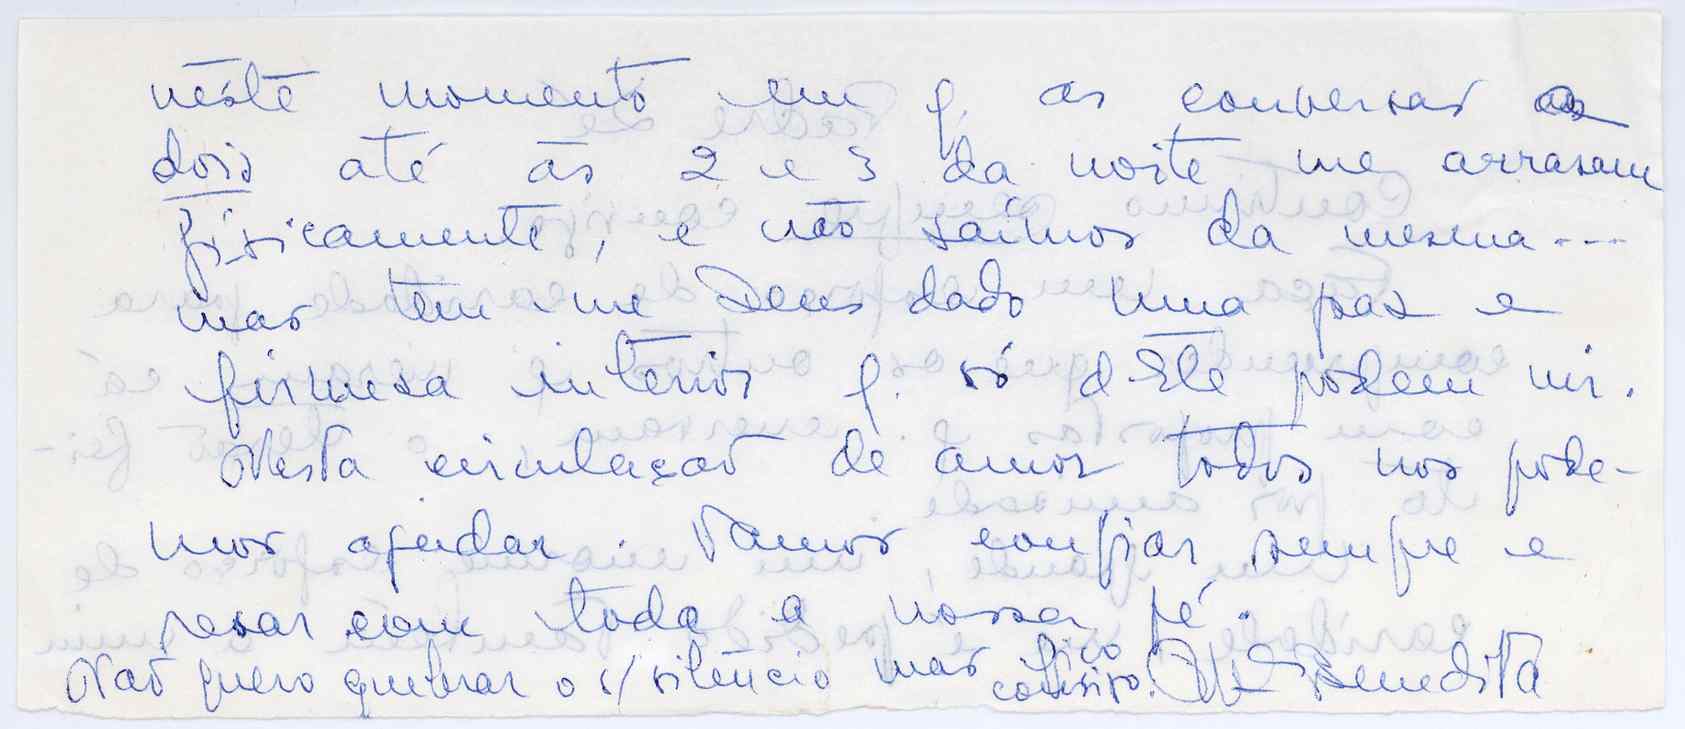 neste momento em q. as conversas aos
dois até às 2 e 3 da noite me arrasam
fisicamente, e não saímos da mesma...
mas tem-me Deus dado uma paz e
firmesa interior q. só d'Ele podem vir.
Nesta circulação de amor todos nos pode-
mos ajudar. Vamos confiar sempre e
rezar com toda a nossa fé.
Não quero quebrar o s/ silêncio mas fico
consigo. Benedita